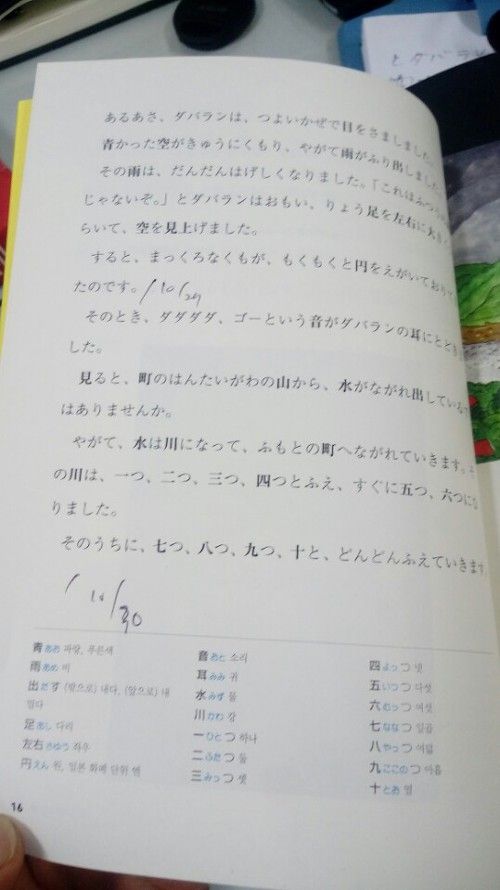 とダバラ
あるあさ、ダバランは、つよいかぜで目をさましました。
青かった空がきゅうにくもり、やがて雨がふり出しました
その雨は、だんだんはげしくなりました。「これはふつう
じゃないぞ。」とダバランはおもい、りょう足を左右に大き
らいて、空を見上げました。
すると、まっくろなくもが、もくもくと円をえがいており
たのです。/10/29
そのとき、ダダダダ、ゴーという音がダバランの耳にとどき
した。
見ると、町のはんたいがわの山から、水がながれ出している
はありませんか。
やがて、水は川になって、ふもとの町へながれていきます。そ
の川は、一つ、二つ、三つ、四つとふえ、すぐに五つ、六つにな
りました。
そのうちに、七つ、八つ、九つ、十と、どんどんふえていきます
/10/30
青あお 파랑, 푸른색
雨あめ 비
出だす (밖으로) 내다, (앞으로) 내
밀다
足あし 다리
左右さゆう 좌우
円えん 원, 일본 화폐 단위 엔
音おと 소리
耳みみ 귀
水みず 물
川かわ 강
一ひとつ 하나
二ふたつ 둘
三みっつ 셋
四よっつ 넷
五いつつ 다섯
六むっつ 여섯
七ななつ 일곱
八やっつ 여덟
九ここのつ 아홉
十とお 열
16